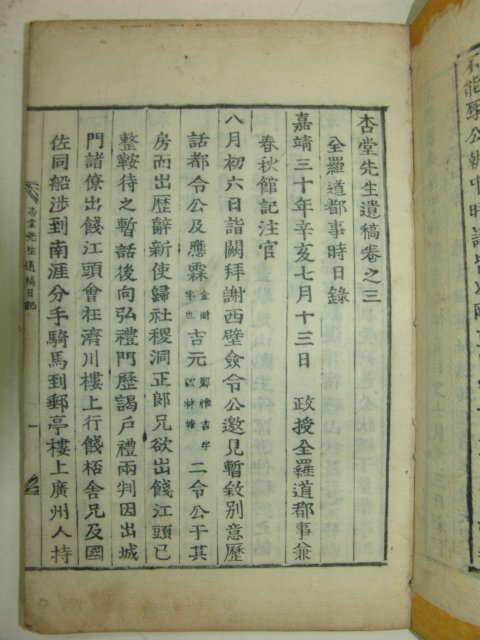 杏堂先生遺稿卷之三
全羅道都事時日錄
嘉靖三十年辛亥七月十三日 政授全羅道都事兼
春秋館記注官
八月初六日詣闕拜謝西壁僉令公邀見暫敘別意歷
話都令公及應霖 吉元 二令公于其
房而出歷辭新使歸社稷洞正郎兄欲出餞江頭已
整鞍待之暫話後向弘禮門歷謁戶禮兩判因出城
門諸僚出餞江頭會在濟川樓上行餞栢舍兄及國
佐同船涉到南涯分手騎馬到郵亭樓上廣州人持
杏堂先生遺稿日記 一